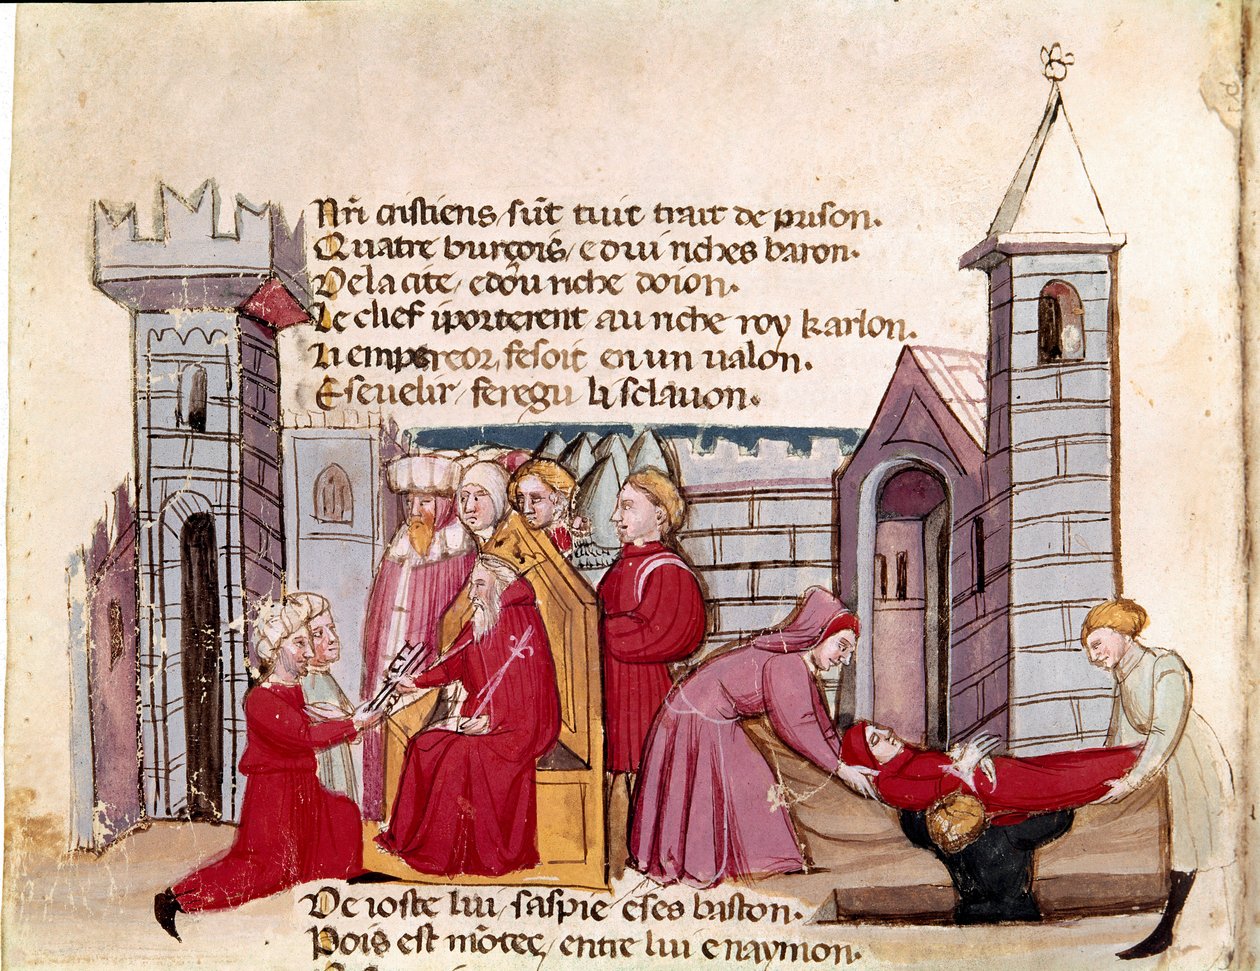 Nr̃i cristiens / sũt tuit trait de prison.
Quatre burçois / e dui riches baron.
De la cite / e dou riche doion.
Le clief i porterent au riche roy karlon.
Li empereor / fesoit en un valon.
Esevelir / feregu li sclavon.
De ioste lui / saspie e ses baston.
Pois est mõteç / entre lui e naymon.